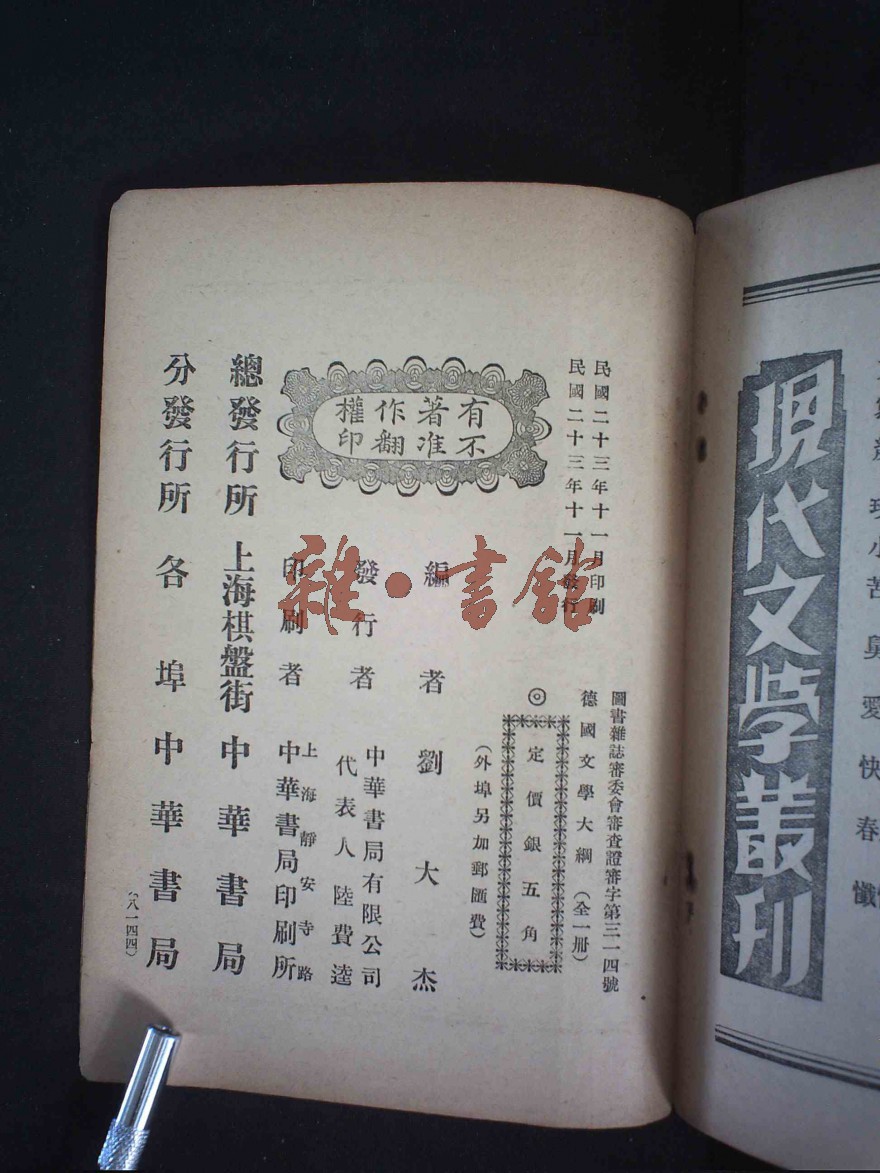 現代文學叢刊
民國二十三年十一月印刷
民國二十三年十一月發行
圖書雜誌審委會審查證審字第三一四號
德國文學大綱(全一册)
◎定價銀五角
(外埠另加郵匯費)
有著作權
不准翻印
編者劉大杰
發行者
中華書局有限公司
代表人陸費逵
印刷者
上海靜安寺路
中華書局印刷所
總發行所 上海棋盤街 中華書局
分發行所 各埠中華書局
(八一四四)
雜·書館